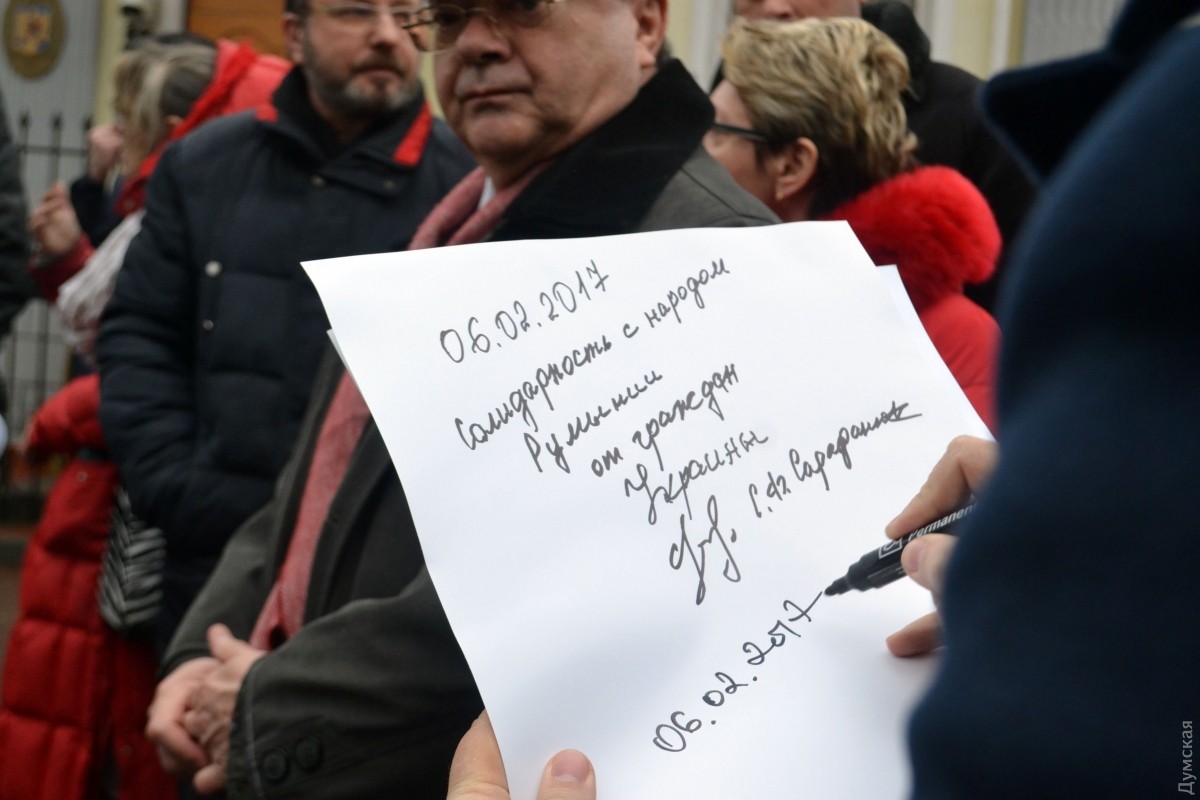 06.02.2017
Солидарность с народом
Румынии
от граждан
Украины
06.02.2017
Permanent
Думская